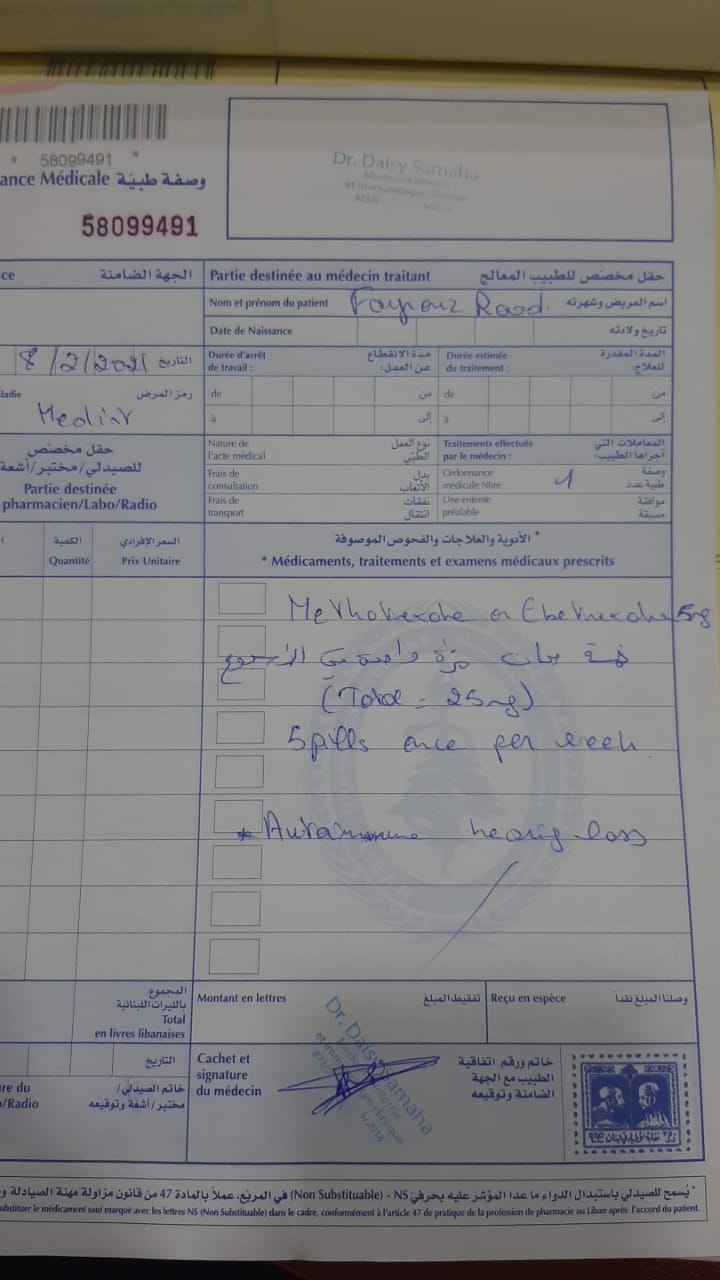 * 58099491 *
ance Médicale وصفة طبيّة
58099491
Dr. Daisy Samaha
Médecine interne
et immunologie clinique
ce الجهة الضامنة
Partie destinée au médecin traitant حقل مخصّص للطبيب المعالج
Nom et prénom du patient Fayrouz Raad. اسم المريض وشهرته
Date de Naissance تاريخ ولادته
8/2/2021 التاريخ
Durée d'arrêt de travail : مدة الانقطاع عن العمل:
Durée estimée du traitement : المدة المقدرة للعلاج:
ladie رمز المرض
de من de من
à إلى à إلى
حقل مخصّص
للصيدلي/مختبر/أشعة
Partie destinée
pharmacien/Labo/Radio
Nature de l'acte médical نوع العمل الطبّي
Traitements effectués par le médecin : المعاملات التي أجراها الطبيب:
Frais de consultation بدل الأتعاب
Ordonnance médicale Nbre 1 وصفة طبية عدد
Frais de transport نفقات انتقال
Une entente préalable موافقة مسبقة
الكمية السعر الإفرادي
Quantité Prix Unitaire
* الأدوية والعلاجات والفحوص الموصوفة
* Médicaments, traitements et examens médicaux prescrits
Methotrexate or Ebetrexate 5mg
خمسة حبات مرّة واحدة في الأسبوع
(Total = 25mg)
5 pills once per week.
* Autoimmune hearing loss
المجموع
بالليرات اللبنانية
Total
en livres libanaises
Montant en lettres تفقيط المبلغ
Reçu en espèce وصلنا المبلغ نقداً
التاريخ
re du
o/Radio
خاتم الصيدلي/
مختبر/أشعة وتوقيعه
Cachet et
signature
du médecin
Dr. Daisy Samaha
خاتم ورقم اتفاقية
الطبيب مع الجهة
الضامنة وتوقيعه
* يُسمح للصيدلي باستبدال الدواء ما عدا المؤشر عليه بحرفي NS - (Non Substituable) في المربّع، عملاً بالمادة 47 من قانون مزاولة مهنة الصيادلة و
ubstituer le médicament sauf marqué avec les lettres NS (Non Substituable) dans le cadre, conformément à l'article 47 de pratique de la profession de pharmacie au Liban après l'accord du patient.